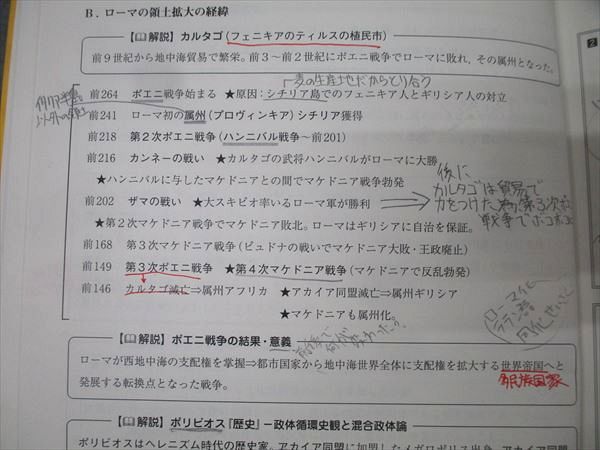 B. ローマの領土拡大の経緯
【解説】カルタゴ(フェニキアのティルスの植民市)
前9世紀から地中海貿易で繁栄。前3～前2世紀にポエニ戦争でローマに敗れ、その属州となった。
麦の生産地だからとり合う
前264 ポエニ戦争始まる ★原因:シチリア島でのフェニキア人とギリシア人の対立
イタリア半島
以外の領土
前241 ローマ初の属州(プロヴィンキア)シチリア獲得
前218 第2次ポエニ戦争(ハンニバル戦争~前201)
前216 カンネーの戦い ★カルタゴの武将ハンニバルがローマに大勝
★ハンニバルに与したマケドニアとの間でマケドニア戦争勃発
後に
カルタゴは貿易で
力をつけた為、第3次ポエ
戦争でボコボコ
前202 ザマの戦い ★大スキピオ率いるローマ軍が勝利
★第2次マケドニア戦争でマケドニア敗北。ローマはギリシアに自治を保証。
前168 第3次マケドニア戦争(ピュドナの戦いでマケドニア大敗・王政廃止)
前149 第3次ポエニ戦争 ★第4次マケドニア戦争(マケドニアで反乱勃発)
前146 カルタゴ滅亡⇒属州アフリカ ★アカイア同盟滅亡⇒属州ギリシア
★マケドニアも属州化。
ローマ化
ラテン語
同化
【解説】ポエニ戦争の結果・意義
ローマが西地中海の支配権を掌握⇒都市国家から地中海世界全体に支配権を拡大する世界帝国へと
発展する転換点となった戦争。
多民族国家
【解説】ポリビオス『歴史』－政体循環史観と混合政体論
ポリビオスはヘレニズム時代の歴史家。アカイア同盟に加盟したメガロポリス出身。アカイア同盟
2